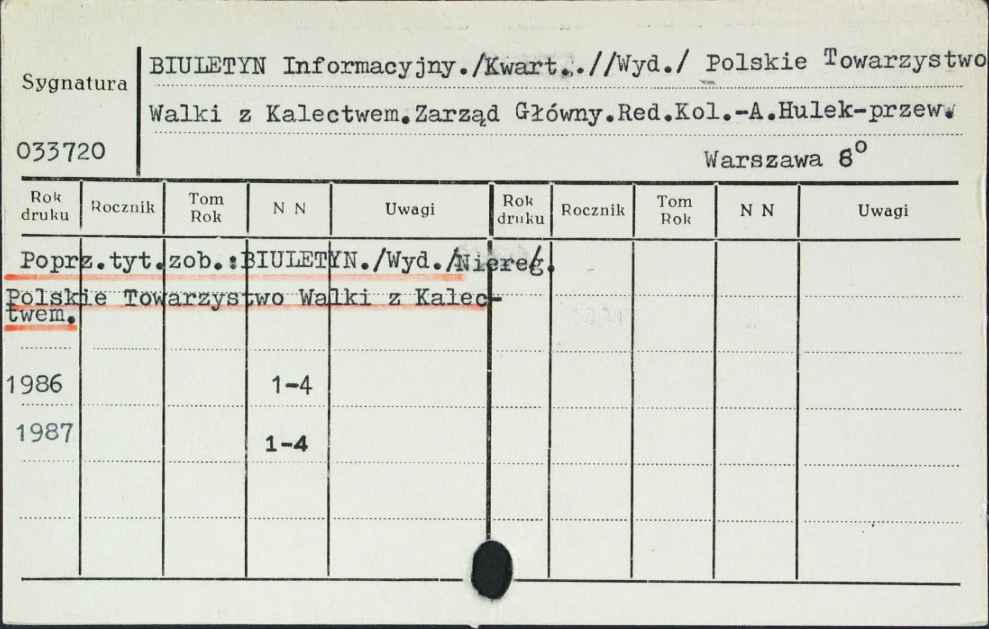 BIULETYN Informacyjny./Kwart..//Wyd./ Polskie Towarzystwo
Sygnatura
Walki z Kalectwem.Zarząd Główny.Red.Kol.-A.Hulek-przew.
033720
Warszawa 8°
Rok druku Rocznik Tom Rok N N Uwagi Rok druku Rocznik Tom Rok N N Uwagi
Poprz.tyt.zob.:BIULETYN./Wyd./Niereg.
Polskie Towarzystwo Walki z Kalec-
twem.
1986 1-4
1987 1-4